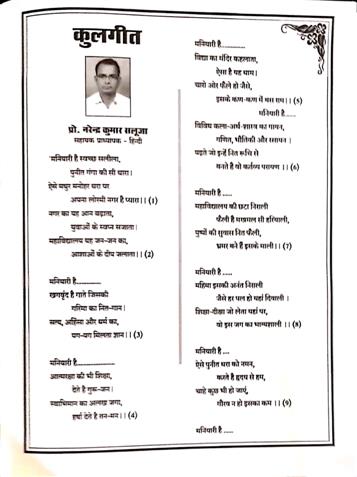 कुलगीत
प्रो. नरेन्द्र कुमार सलूजा
सहायक प्राध्यापक - हिन्दी
मनियारी है स्वच्छ सलीला,
पुनीत गंगा की सी धारा।
ऐसे मधुर मनोहर धरा पर
अपना लोरमी नगर है प्यारा।। (1)
नगर का यह आन बढ़ाता,
युवाओं के स्वप्न सजाता।
महाविद्यालय यह जन-जन का,
आशाओं के दीप जलाता।। (2)
मनियारी है..................
खगवृंद है गाते जिसकी
गरिमा का नित-गान।
सत्य, अहिंसा और धर्म का,
पग-पग मिलता ज्ञान।। (3)
मनियारी है..................
आत्मरक्षा की भी शिक्षा,
देते हैं गुरू-जन।
स्वाभिमान का अलख जगा,
हर्षा देते है तन-मन।। (4)
मनियारी है..................
विद्या का मंदिर कहलाता,
ऐसा है यह धाम।
चारो ओर फैले हो जैसे,
इसके कण-कण में बस राम।। (5)
मनियारी है......
विविध कला-अर्थ-शास्त्र का गायन,
गणित, भौतिकी और रसायन।
पढ़ते जो इन्हें नित रूचि से
बनते है वो कर्तव्य परायण।। (6)
मनियारी है .....
महाविद्यालय की छटा निराली
फैली है मखमल सी हरियाली,
पुष्पों की सुवास नित फैली,
भ्रमर बने हैं इसके माली।। (7)
मनियारी है .....
महिमा इसकी अनंत निराली
जैसे हर पल हो यहां दिवाली।
शिक्षा-दीक्षा जो लेता यहां पर,
वो इस जग का भाग्यशाली।। (8)
मनियारी है ....
ऐसे पुनीत धरा को नमन,
करते है हृदय से हम,
चाहे कुछ भी हो जाएं,
गौरव न हो इसका कम।। (9)
मनियारी है .....